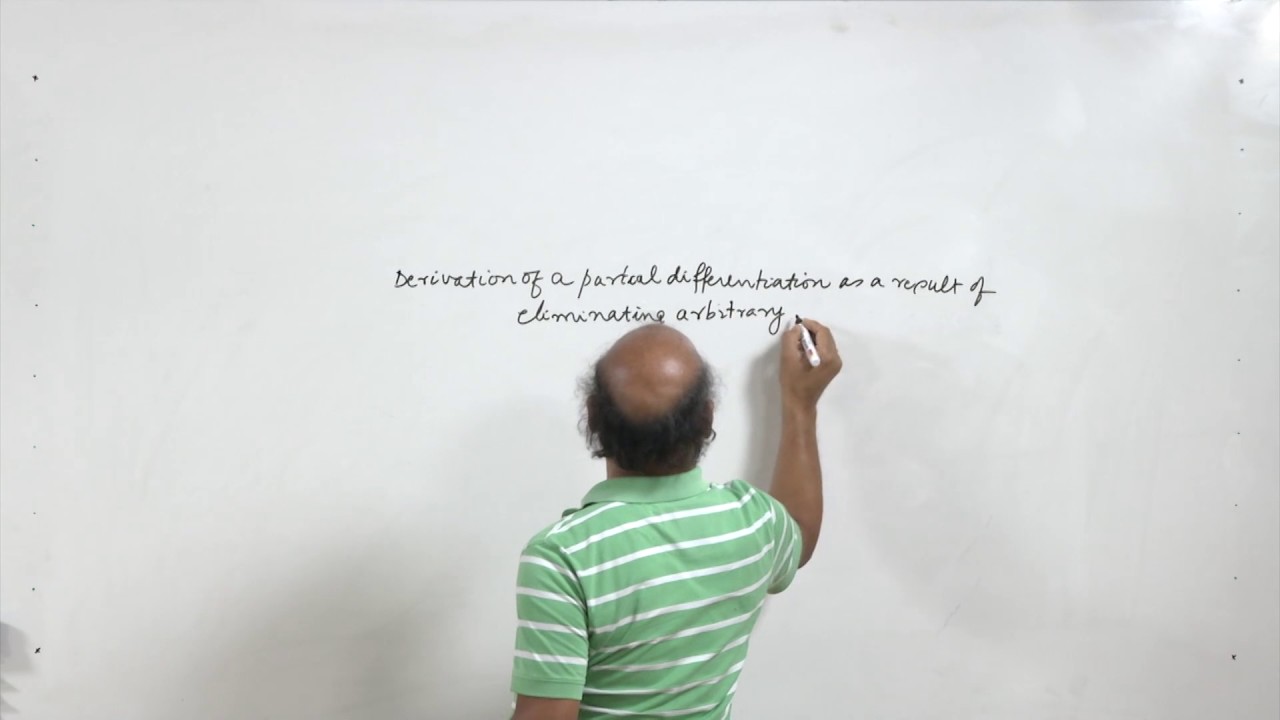 Derivation of a partial differentiation as a result of
eliminating arbitrary